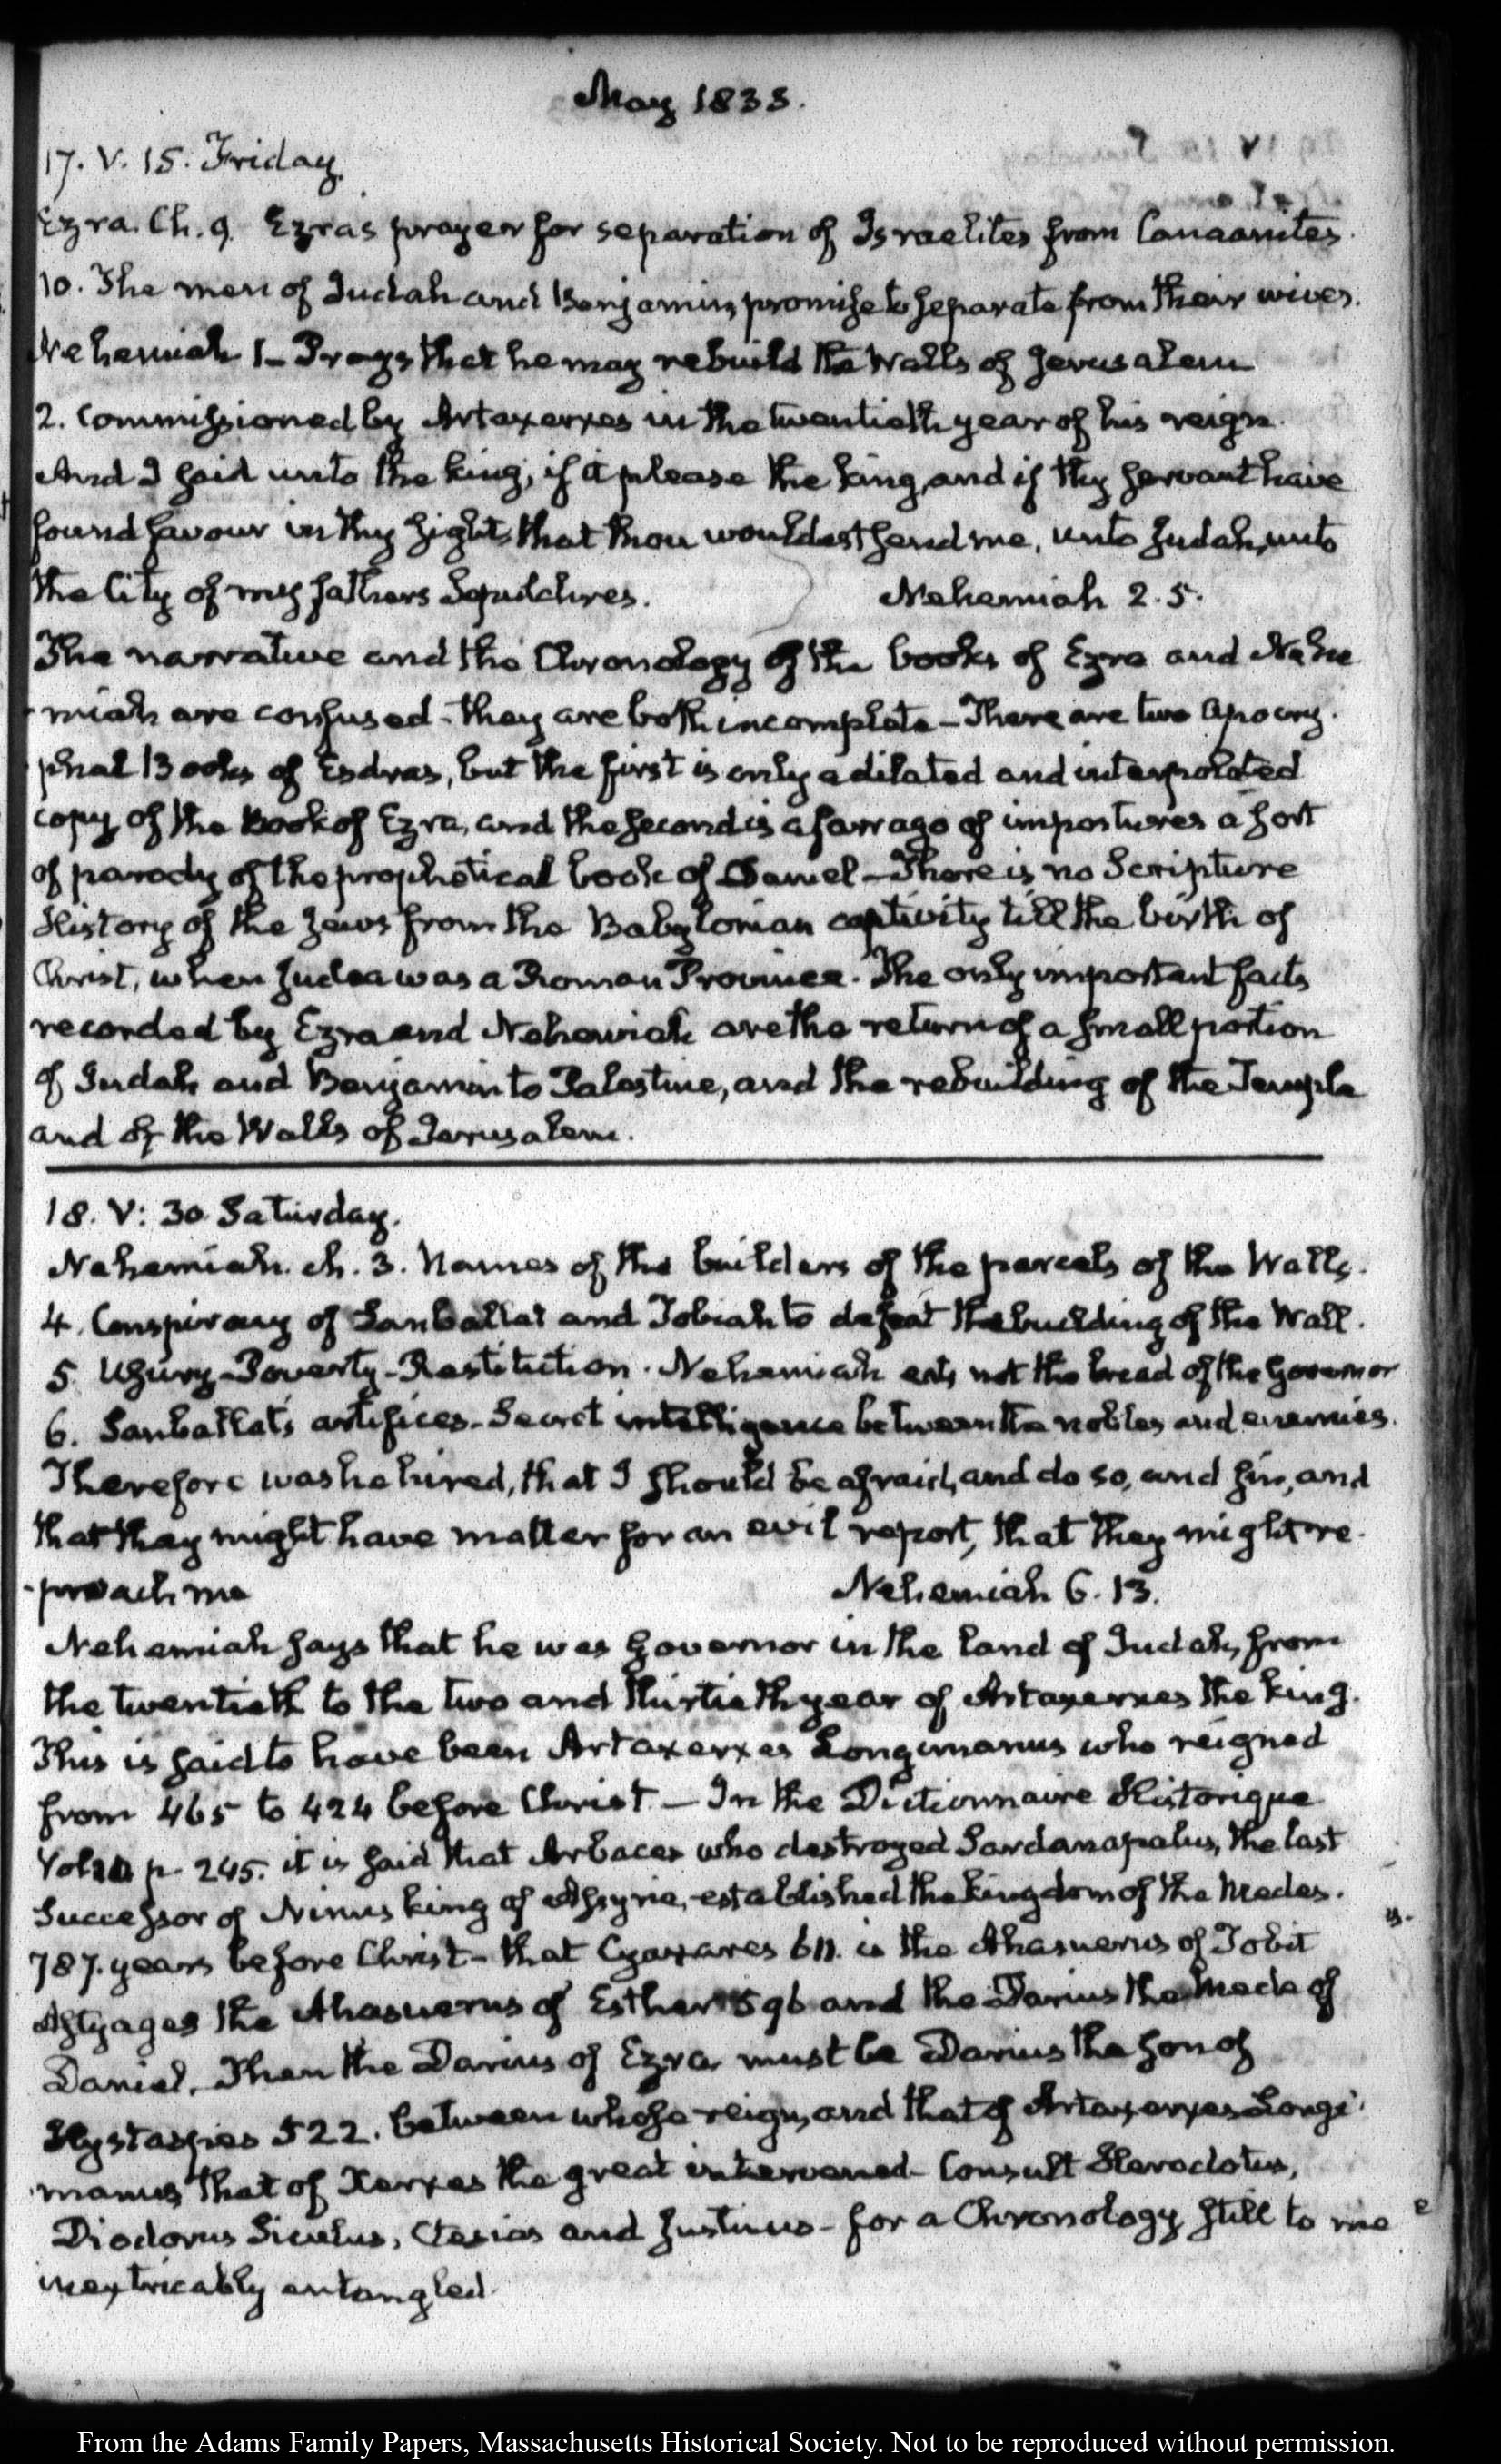 May 1833.
17. V. 15. Friday.
Ezra. Ch. 9. Ezra's prayer for separation of Israelites from Canaanites.
10. The men of Judah and Benjamin, promise to separate from their wives.
Nehemiah 1 – Prays that he may rebuild the Walls of Jerusalem
2. Commissioned by Artaxerxes in the twentieth year of his reign.
And I said unto the king, if it please the king, and if thy servant have
found favour in thy sight, that thou wouldest send me, unto Judah, unto
the City of my fathers Sepulchres. Nehemiah 2. 5.
The narrative and the Chronology of the books of Ezra and Nehe
-miah are confused - they are both incomplete – There are two Apocry-
phal Books of Esdras, but the first is only a dilated and interpolated
copy of the Book of Ezra, and the second is a farrago of impostures a sort
of parody of the prophetical book of Daniel – There is no Scripture
History of the Jews from the Babylonian captivity till the birth of
Christ, when Judea was a Roman Province. The only important facts
recorded by Ezra and Nehemiah are the return of a small portion
of Judah and Benjamin to Palestine, and the rebuilding of the Temple
and of the Walls of Jerusalem.
18. V: 30. Saturday.
Nehemiah. ch. 3. Names of the builders of the parcels of the Walls.
4. Conspiracy of Sanballat and Tobiah to defeat the building of the Wall.
5. Usury - Poverty - Restitution. Nehemiah eats not the bread of the Governor
6. Sanballat's artifices - Secret intelligence between the nobles and enemies.
Therefore was he hired, that I should be afraid, and do so, and sin, and
that they might have matter for an evil report, that they might re-
-proach me Nehemiah 6. 13.
Nehemiah says that he was Governor in the land of Judah, from
the twentieth to the two and thirtieth year of Artaxerxes the king.
This is said to have been Artaxerxes Longimanus who reigned
from 465 to 424 before Christ – In the Dictionnaire Historique
Vol. p. 245. it is said that Arbaces who destroyed Sardanapalus, the last
Successor of Ninus king of Assyria, established the kingdom of the Medes.
787. years before Christ - that Cyaxares 611. is the Ahasuerus of Tobit
Astyages the Ahasuerus of Esther 596 and the Darius the Mede of
Daniel. Then the Darius of Ezra must be Darius the son of
Hystaspes 522. between whose reign, and that of Artaxerxes Longi-
-manus that of Xerxes the great intervened - Consult Herodotus,
Diodorus Siculus, Ctesias and Justinus - for a Chronology still to me
inextricably entangled.
From the Adams Family Papers, Massachusetts Historical Society. Not to be reproduced without permission.